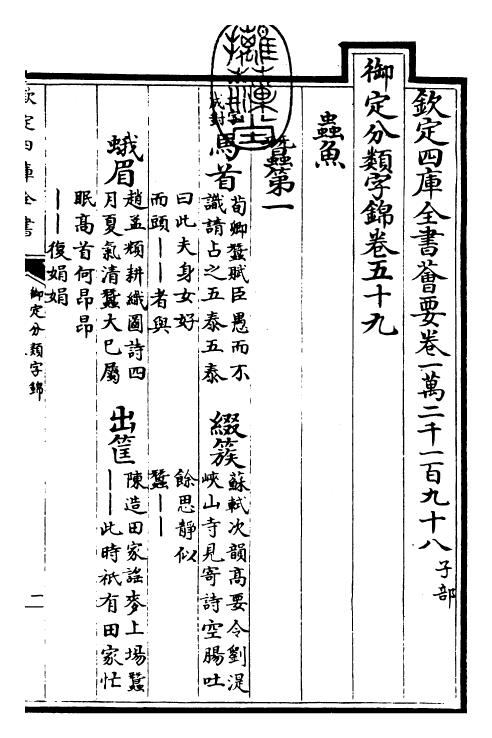 欽定四庫全書薈要卷一萬二千一百九十八 子部
御定分類字錦卷五十九
蟲魚
蠶第一
馬首
荀卿蠶賦臣愚而不
識請占之五泰五泰
曰此夫身女好
而頭｜｜者與
綴簇
蘇軾次韻高要令劉湜
峽山寺見寄詩空腸吐
餘思靜似
蠶｜｜
蛾眉
趙孟頫耕織圖詩四
月夏氣清蠶大已屬
眠高首何昂昂
｜｜復娟娟
出筐
陳造田家謡麥上場蠶
｜｜此時祇有田家忙
欽定四庫全書
御定分類字錦
二